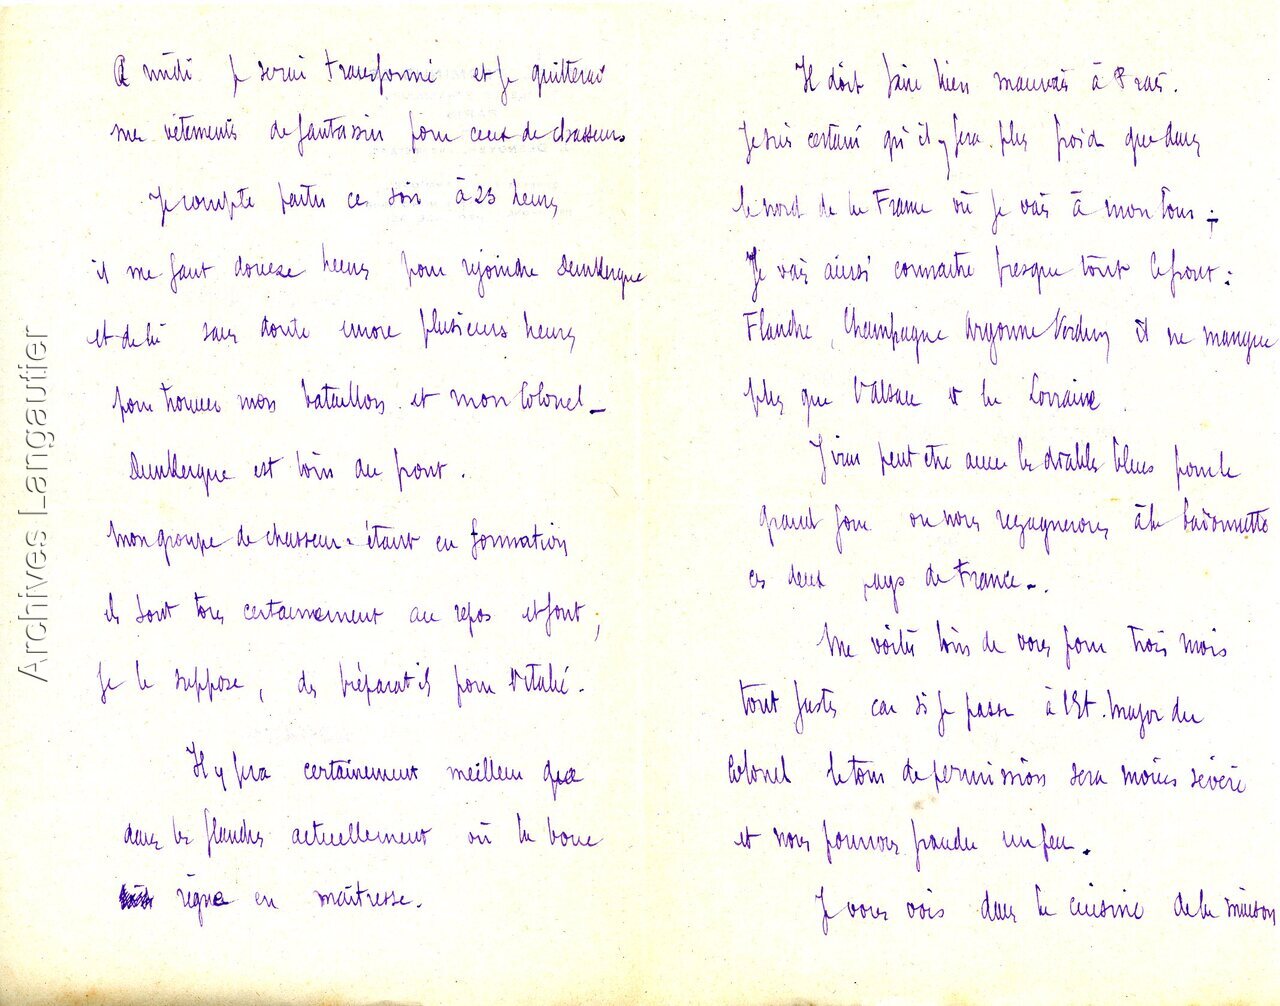 A midi je serai transformé et je quitterai
mes vêtements de fantassin pour ceux de chasseurs
Je compte partir ce soir à 23 heures
il me faut douze heures pour rejoindre Dunkerque
et de là sans doute encore plusieurs heures
pour trouver mon bataillon et mon Colonel -
Dunkerque est loin du front.
Mon groupe de chasseurs étant en formation
ils sont tous certainement au repos et font,
je le suppose, des préparatifs pour l'Italie.
Il y fera certainement meilleur que
dans les flandres actuellement où la boue
règne en maîtresse.
Il doit faire bien mauvais à
Je suis certain qu'il y fera plus froid que dans
le nord de la France où je vais à mon tour;
Je vais ainsi connaitre presque tout le front:
Flandre, Champagne Argonne Verdun il ne manque
plus que l'Alsace et la Lorraine.
J'irai peut être avec les diables bleus pour le
grand jour où nous regagnerons à la baïonnette
ces deux pays de France -.
Me voilà loin de vous pour trois mois
tout juste car si je passe à l'Et. Major du
Colonel le tour de permission sera moins sévère
et nous pourrons frauder un peu.
Je vous vois dans la cuisine de la maison
Archives Langautier